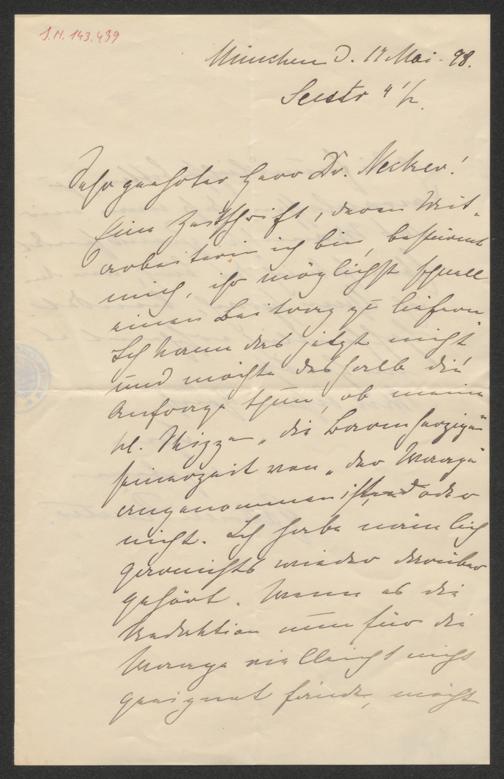 J.N. 143.439
München d. 17 Mai. 98.
Seestr 4 1/2.
Sehr geehrter Herr Dr. Necker!
Eine Zeitschrift, deren Mit-
arbeiterin ich bin, bestürmt
mich, ihr möglichst schnell
einen Beitrag zu liefern
Ich kann das jetzt nicht
und möchte deshalb die
Anfrage thun, ob meine
kl. Skizze „die Barmherzige"
seinerzeit von „der Waage"
angenommen ist, oder
nicht. Ich habe nämlich
garnichts wieder darüber
gehört. Wenn es die
Redaktion nun für die
Waage vielleicht nicht
geeignet fände, möcht